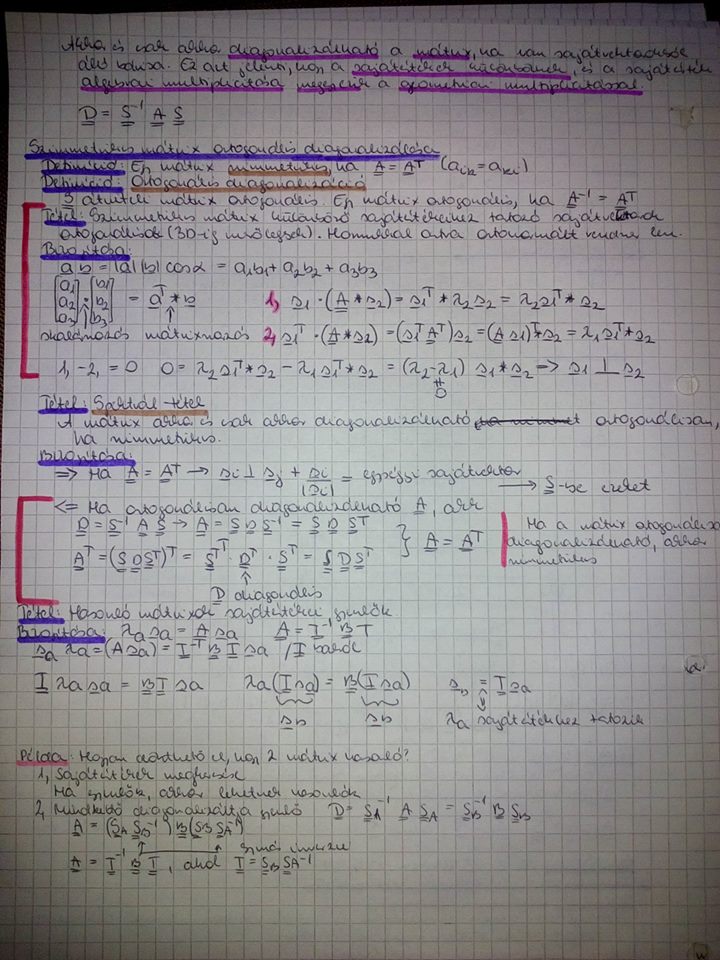 Akkor és csak akkor diagonalizálható a mátrix, ha van sajátvektorokból
álló bázisa. Ez azt jelenti, hogy a sajátértékek különbözőek, és a sajátérték
algebrai multiplicitása megegyezik a geometriai multiplicitással.
D = S⁻¹ A S
Szimmetrikus mátrix ortogonális diagonalizálása
Definíció: Egy mátrix szimmetrikus, ha A = Aᵀ (aᵢₖ = aₖᵢ)
Definíció: Ortogonális diagonalizáció
S átviteli mátrix ortogonális. Egy mátrix ortogonális, ha A⁻¹ = Aᵀ
Tétel: Szimmetrikus mátrix különböző sajátértékeihez tartozó sajátvektorok
ortogonálisak (3D-ig merőlegesek). Normálással ortonormált rendszer lesz.
Bizonyítása:
a b = |a| |b| cos α = a₁b₁ + a₂b₂ + a₃b₃
[a₁ a₂ a₃] · [b₁ b₂ b₃] = aᵀ * b 1, s₁ · (A * s₂) = s₁ᵀ * λ₂ s₂ = λ₂ s₁ᵀ * s₂
skalárszorzás mátrixszorzás 2, s₁ᵀ · (A * s₂) = (s₁ᵀ Aᵀ) s₂ = (A s₁)ᵀ * s₂ = λ₁ s₁ᵀ * s₂
1, - 2, = 0 0 = λ₂ s₁ᵀ * s₂ - λ₁ s₁ᵀ * s₂ = (λ₂ - λ₁) s₁ * s₂ => s₁ ⊥ s₂
≠ 0
Tétel: Spektrál-tétel
A mátrix akkor és csak akkor diagonalizálható ortogonálisan,
ha szimmetrikus.
Bizonyítása:
=> Ha A = Aᵀ → sᵢ ⊥ sⱼ + sᵢ/|sᵢ| = egységnyi sajátvektor → S-be
<= Ha ortogonálisan diagonalizálható A, akk
D = S⁻¹ A S → A = S D S⁻¹ = S D Sᵀ
Aᵀ = (S D Sᵀ)ᵀ = Sᵀᵀ · Dᵀ · Sᵀ = S D Sᵀ } A = Aᵀ
Ha a mátrix ortogonálisan
diagonalizálható, akkor
szimmetrikus
D diagonális
Tétel: Hasonló mátrixok sajátértékei egyenlők
Bizonyítása: λₐ sₐ = A sₐ A = T⁻¹ B T
sₐ λₐ = (A sₐ) = T⁻¹ B T sₐ / T balról
T λₐ sₐ = B T sₐ λₐ (T sₐ) = B (T sₐ) s_b = T sₐ
s_b s_b λₐ sajátértékhez tartozik
Példa: Hogyan dönthető el, hogy 2 mátrix hasonló?
1, Sajátértékek
Ha egyenlők, akkor lehetnek hasonlók
2, Mindkettő diagonalizáltja egyenlő D = S_A⁻¹ A S_A = S_B⁻¹ B S_B
A = (S_A S_B⁻¹) B (S_B S_A⁻¹)
egymás inverze
A = T⁻¹ B T, ahol T = S_B S_A⁻¹